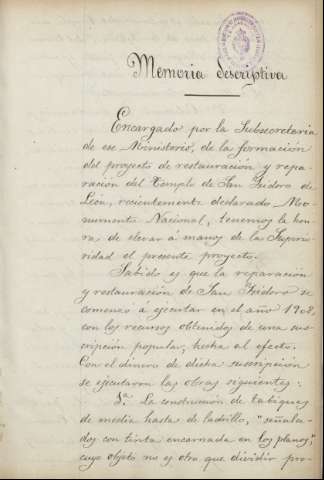 Memoria descriptiva
Encargado por la Subsecretaria
de ese Ministerio, de la formación
del proyecto de restauración y repa-
ración del Templo de San Isidoro de
León, recientemente declarado Mo-
numento Nacional, tenemos la hon-
ra de elevar á manos de la Superio-
ridad el presente proyecto.
Sabido es que la reparación
y restauración de San Isidoro se
comenzó á ejecutar en el año 1908,
con los recursos obtenidos de una sus-
cripción popular, hecha al efecto.
Con el dinero de dicha suscripción
se ejecutaron las obras siguientes:
1ª. La construcción de tabiques
de media hasta de ladrillo, "señala-
dos con tinta encarnada en los planos",
cuyo objeto no es otro que dividir pro-